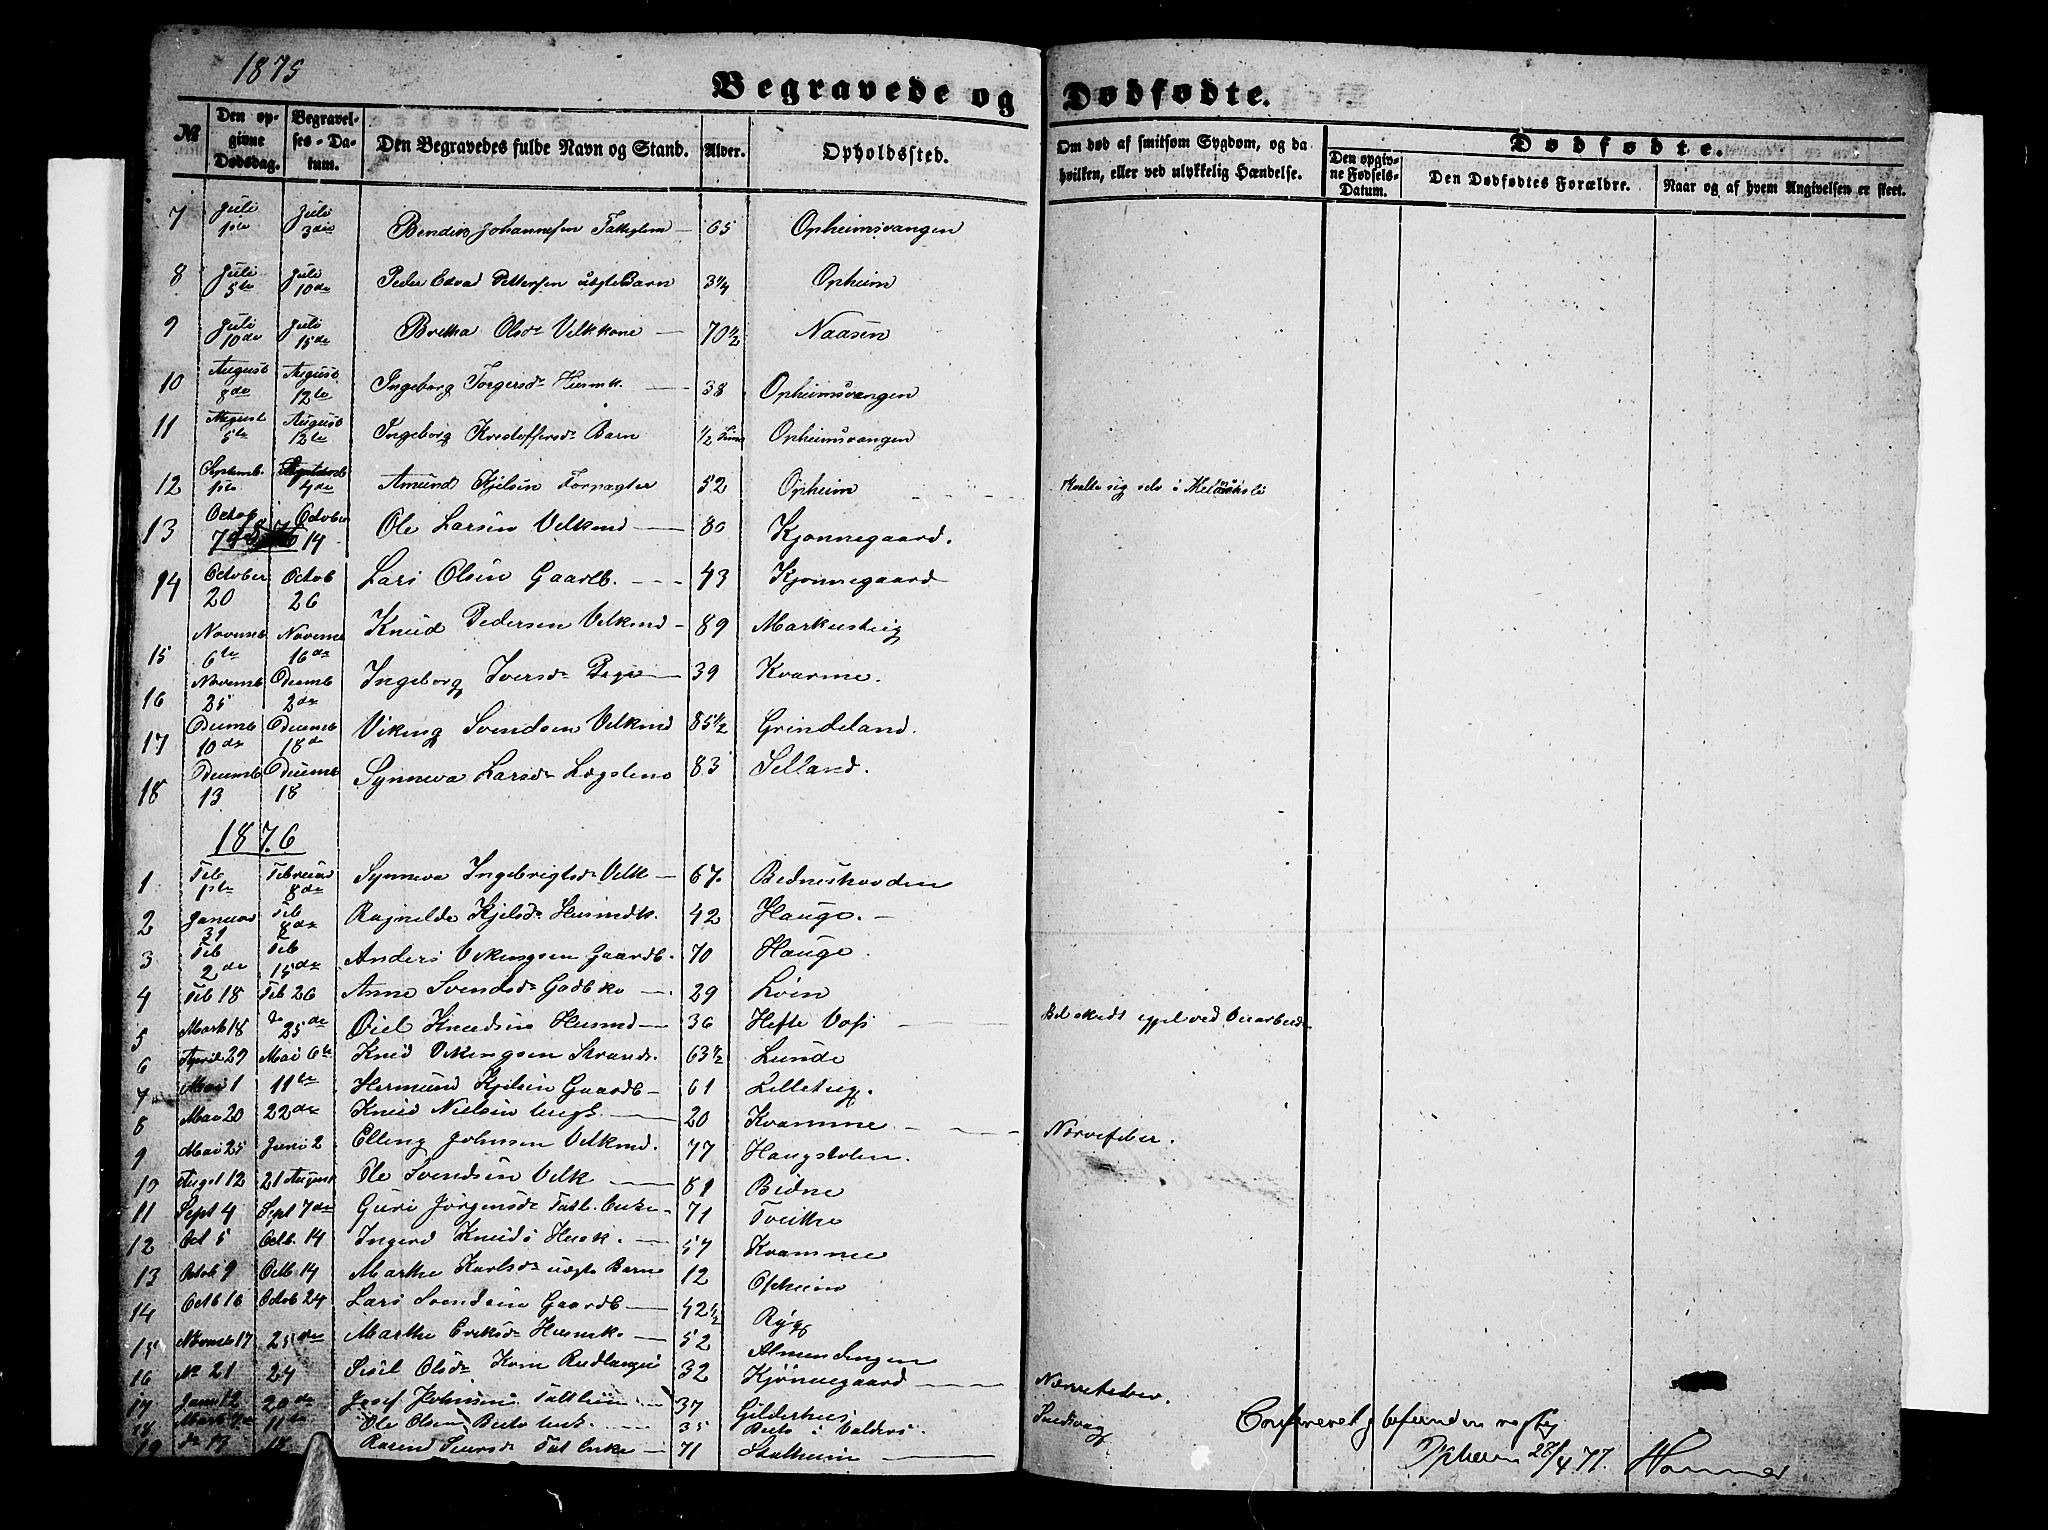 1875
Begravede og Dødfødte.
№ Den opgivne Dødsdag. Begravelses-Datum. Den Begravedes fulde Navn og Stand. Alder. Opholdssted. Om død af smitsom Sygdom, og da hvilken, eller ved ulykkelig Hændelse. Dødfødte. Den opgivne Fødsels-Datum. Den Dødfødtes Forældre. Naar og af hvem Angivelsen er skeet.
7 Juli 1ste Juli 3die Bendix Johannesen 65 Opheimsvangen
8 Juli 5te Juli 10de Peder Edvad Pettersen ægte Barn 3 1/4 Opheim
9 Juli 10de Juli 15de Bretha Olsdr Velkkone 70 1/2 Naasen
10 August 8de August 12te Ingeborg Torgersdr Husmk. 38 Opheimsvangen
11 August 5te August 12te Ingeborg Kristoffersdr Barn 1/2 Opheimsvangen
12 Septemb. 1ste 4de Amund Kjelsen Forpagter 52 Opheim sig selv i
13 Octob October 14 Ole Larsen Velkmd 80 Kjønnegaard.
14 October 20 Octob 26 Lars Olsen Gaardb. 43 Kjønnegaard
15 Novemb 6te Novemb 16de Knud Pedersen Velkmd 89 Markusteig
16 Novemb 25 Decemb 2de Ingeborg Iversdr Pige 39 Kvamme.
17 Decemb 10de Decemb 18de Viking Svendsen Velkmd 85 1/2 Grindeland.
18 Decemb 13 Decemb 18 Synneva Larsdr Lægdslem 83 Selland.
1876
1 Feb 1ste Februar 8de Synneva Ingebrigtsdr Velk 67. Bidneshovden
2 Januar 31 Feb 8de Ragnelde Kjelsdr Husmdk. 42 Hauge.
3 Feb 2de Feb 15de Anders Vikingsen Gaardb. 70 Hauge.
4 Feb 18 Feb 26 Anne Svendsdr Gadbko 29 Löen
5 Mark 18 do 25de Knudsen Husmd 36 Hefte Voss ved
6 April 29 Mai 6te Knud Vikingsen 63 1/2 Lunde
7 Mai 1 11te Hermund Kjelsen Gaardb 61 Lilleteig.
8 Mai 20 22de Knud Nielsen Ungk. 20 Kvamme Nervefeber.
9 Mai 25 Juni 2 Elling Johnsen Velkmd. 77 Haugstolen.
10 Augst 12 21 August Ole Svendsen Velk 81 Bidne
11 Sept 4 Sept 7de Guri Jörgensdr Fatt. Enke 71 Tveithe
12 Oct 5 Octb. 14 Ingerd Knuds Husk. 57 Kvamme
13 Octob 9 Octb 14 Marthe Karlsdr ægte Barn 12 Opheim
14 Octb 16 Octob 24 Lars Svendsen Gaardb 42 1/2 Rÿg
15 Novemb 17 25de Marthe Eriksdr Husmk. 52 Almendingen
16 No 21 24 Sisel Olsdr 32 Kjönnegaard Nervefeber.
17 Janu 12 20de Josef Johnsen 37 Gilderhus
18 Mark 11te Ole Olsen Beito Ungk. 35 Beito i Valders.
19 do 13 18 Fat Enke 71 Stalheim
Confereret og befunden rigtig
Opheim 28/4 77. Hammer